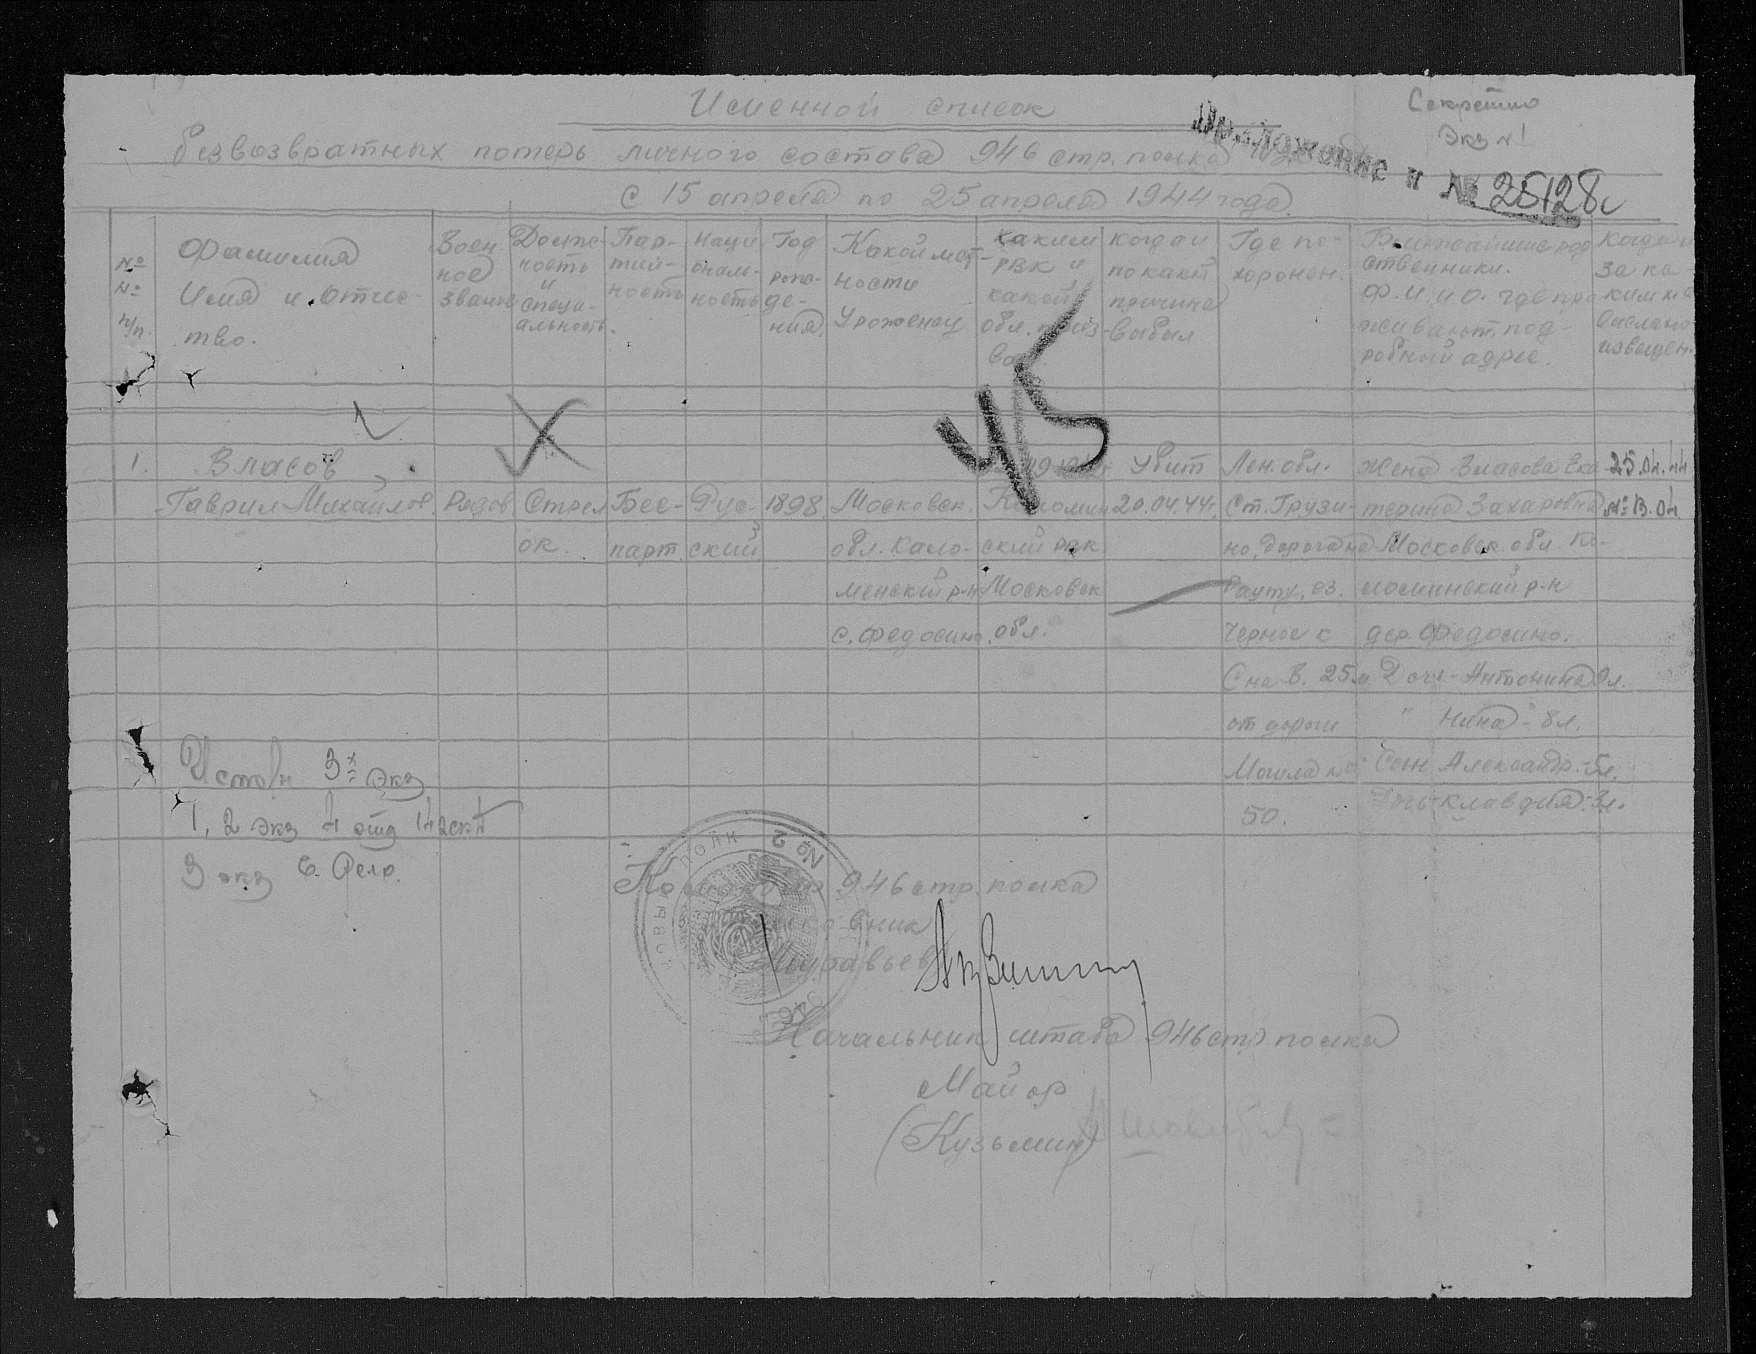 Именной список
Секретно
Экз №1
безвозвратных потерь личного состава 946 стр. полка
Приложение к № 25128с
с 15 апреля по 25 апреля 1944 года.
№ № п/п.
Фамилия Имя и отчество.
Военное звание
Должность и специальность.
Партийность
Национальность
Год рождения
Какой местности уроженец
Каким РВК и какой обл. призван
Когда и по какой причине выбыл
Где похоронен.
Ближайшие родственники. Ф.И. и О. где проживают. подробный адрес.
Когда и за каким № выслано извещен.
45
1. Власов
Гаврил Михайлов.
Рядов
Стрелок.
Беспарт.
Русский
1898
Московск.
обл. Коломенский р-н
с. Федосино.
Коломинский рвк
Московск
обл.
Убит
20.04.44г.
Лен. обл.
ст. Грузино, дорога на
Рауту, оз.
Черное к
С на В. 25м
от дороги
Могила №
50.
Жена Власова Екатерина Захаровна
Московск. обл. Коломинский р-н
дер. Федосино.
Дочь - Антонина
" Нина - 8л.
Сын Александр. - 5л.
Дочь Клавдия - 3л.
25.04.44
№ В.04
3х экз
1, 2 экз 4 отд 142 скд
3 экз в дело.
№ 2
Командир 946 стр. полка
Полковник
Муравьев
Начальник штаба 946 стр. полка
Майор
(Кузьмин)